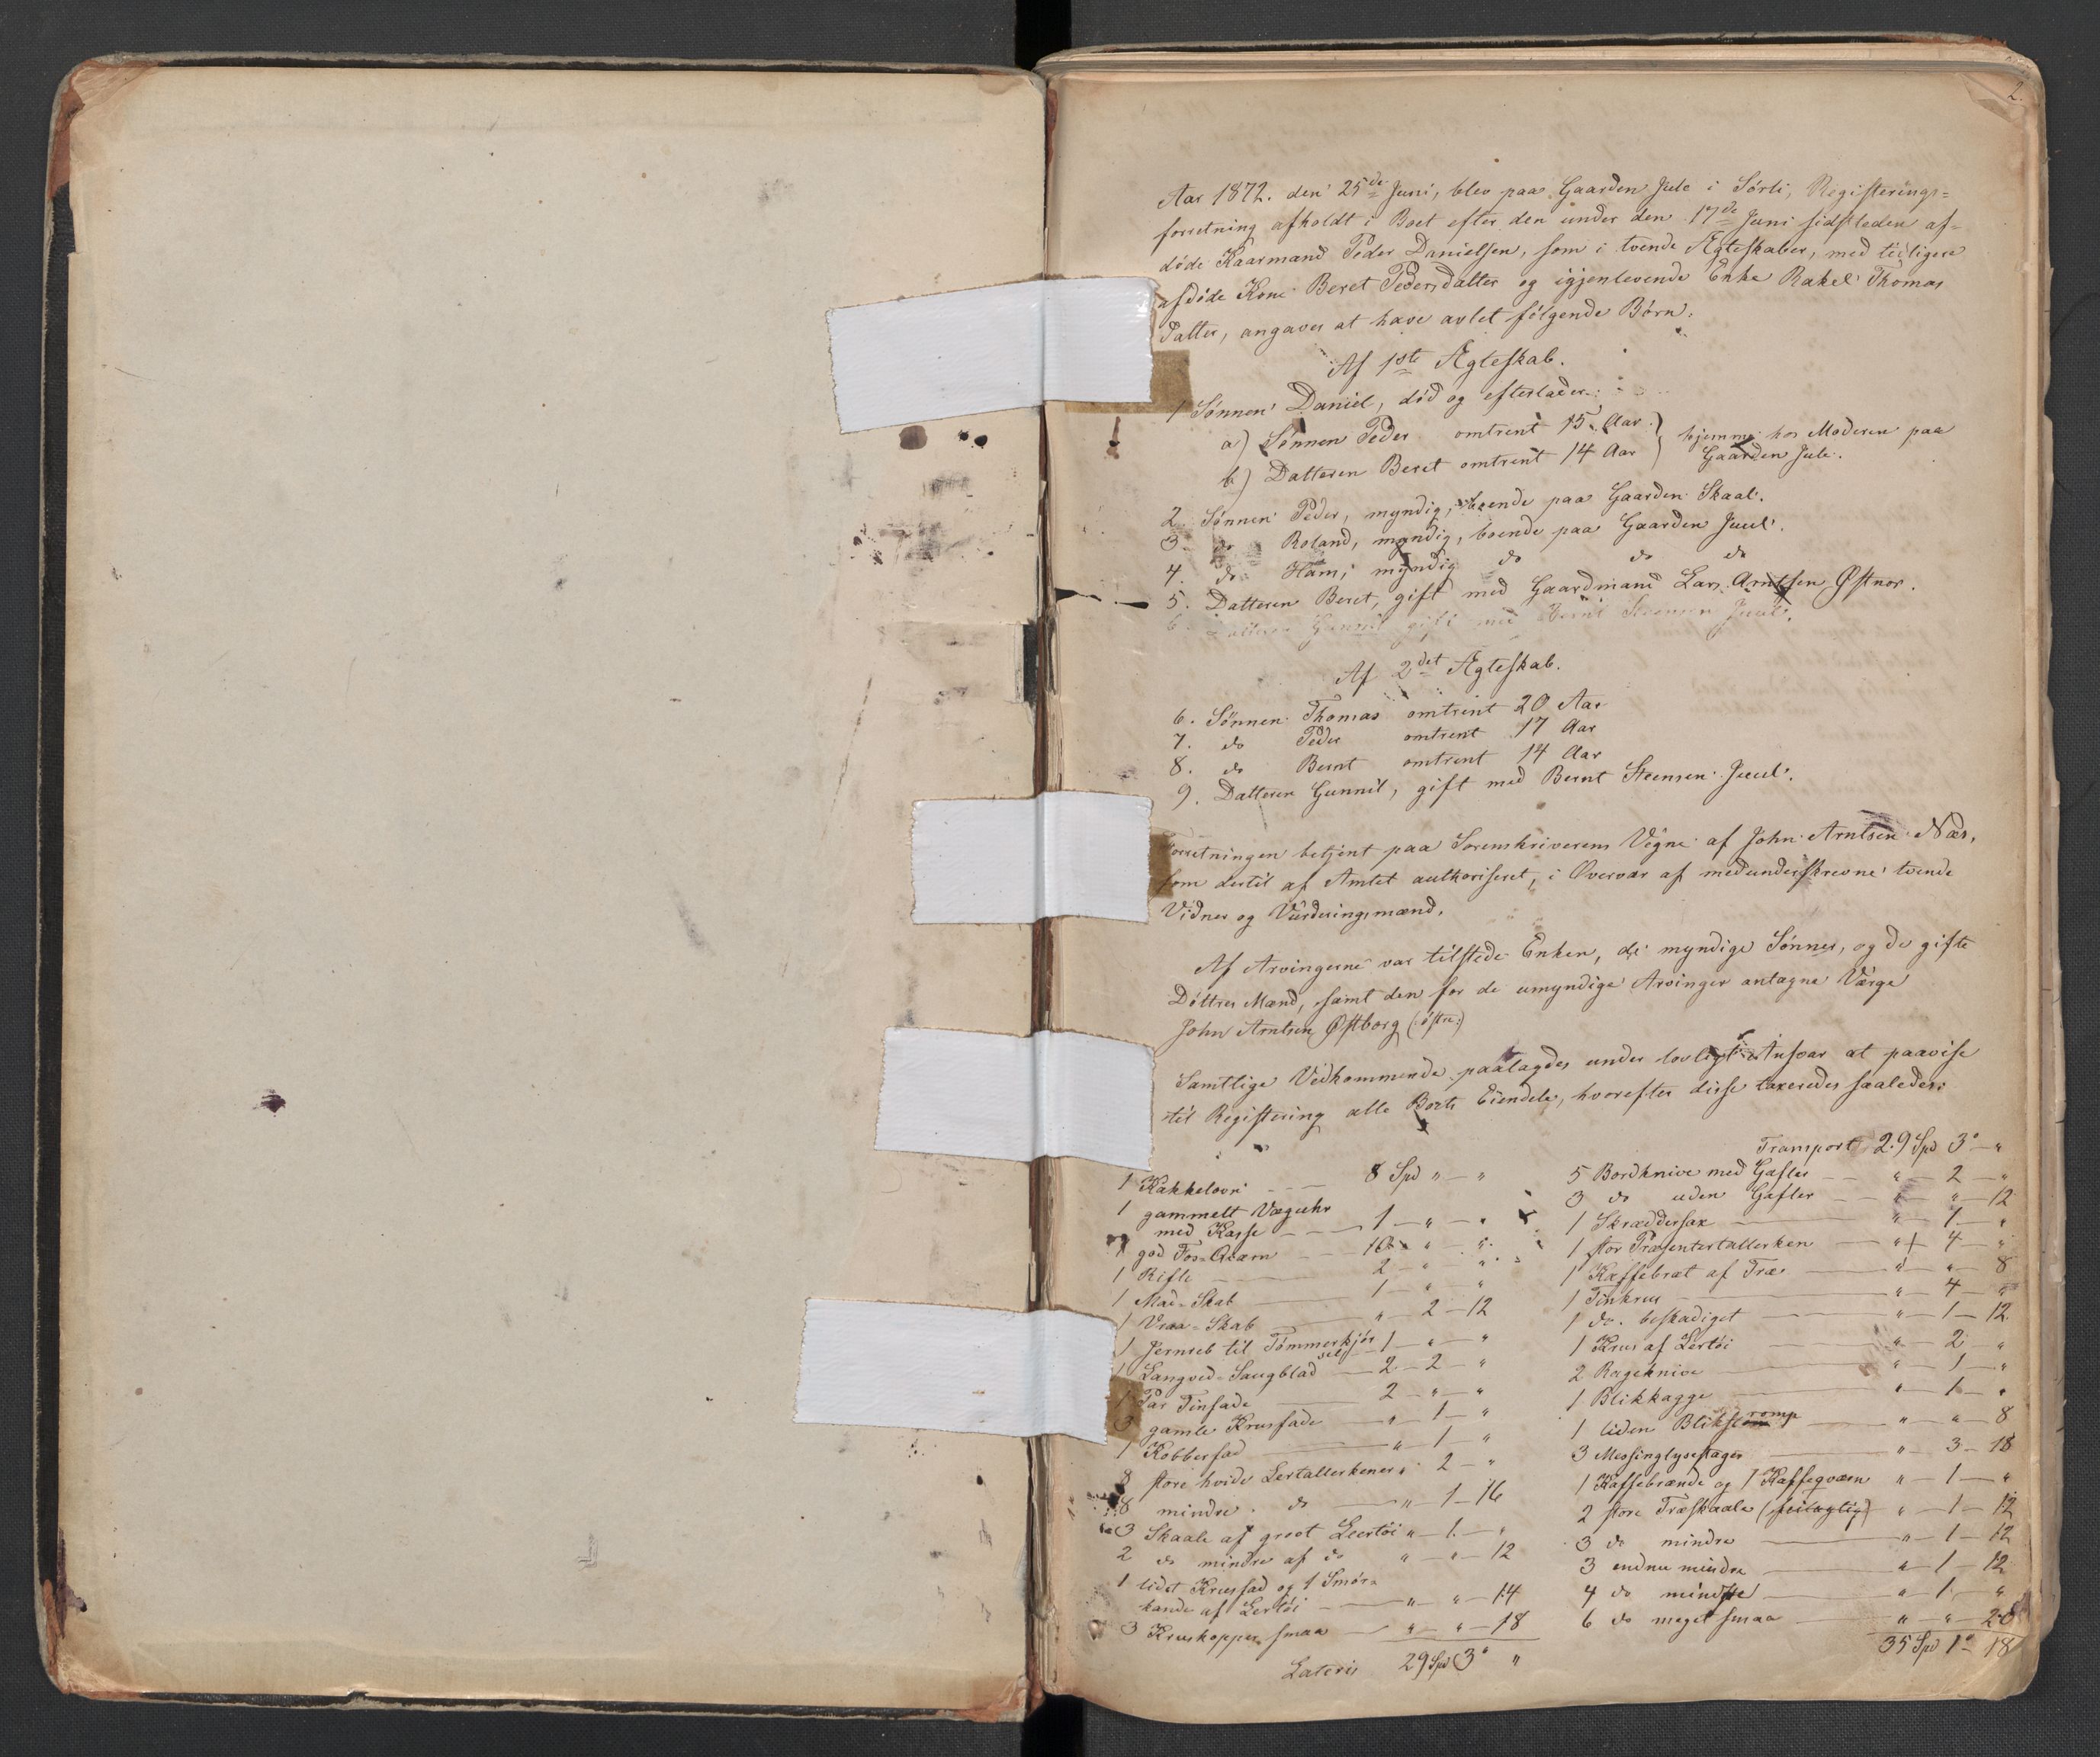 2.
Aar 1872. den 25de Juni, blev paa Gaarden Jule i Sørli, Registerings=
forretning afholdt i Boet efter den under den 17de Juni sidstleden af=
døde Kaarmand Peder Danielsen, som i tvende Ægteskaber, med tidligere
afdøde Kone Beret Pedersdatter og igjenlevende Enke Rakel Thomas
Datter, angaves at have avlet følgende Børn.
Af 1ste Ægteskab.
1 Sønnen Daniel, død og efterlader:
a) Sønnen Peder omtrent 15 Aar } hjemme hos Moderen paa
b) Datteren Beret omtrent 14 Aar } Gaarden Jule.
2. Sønnen Peder, myndig, boende paa Gaarden Skaal.
3 do Roland, myndig, boende paa Gaarden Juul.
4. do Hans, myndig do do do
5. Datteren Beret, gift med Gaardmand Lars Arntsen Østnor.
6. Datteren Gunnil gift med Bernt Steensen Juul.
Af 2det Ægteskab.
6. Sønnen Thomas omtrent 20 Aar
7. do Peder omtrent 17 Aar
8. do Bernt omtrent 14 Aar
9. Datteren Gunnil, gift med Bernt Steensen Juul.
Forretningen betjent paa Sorenskriverens Vegne af John Arntsen Næs,
som dertil af Amtet authoriseret, i Overvær af medunderskrevne tvende
Vidner og Vurderingsmænd.
Af Arvingerne var tilstede Enken, de myndige Sønner, og de gifte
Døttres Mænd, samt den for de umyndige Arvinger antagne Værge
John Arntsen Østborg (østre)
Samtlige Vedkommende paalagdes under lovligt Ansvar at paavise
til Registering alle Boets Eiendele, hvorefter disse taxeredes saaledes:
1 Kakkelovn 8 Spd " — "
1 gammelt Væguhr
med Kasse 1 — " — "
1 god Fos=Qværn 10 " — "
1 Rifle 2 — " — "
1 Mad=Skab 1 — " — "
1 Vraa=Skab " 2 — 12
1 Jernreb til Tømmerkjør 1 — " — "
1 Langved=Saugblad 2 — 2 — "
1 Par Tinfade 2 — " — "
3 gamle Krusfade " — 1 — "
1 Kobberfad " — 1 — "
8 store hvide Lertallerkener " 2 — "
8 mindre do " — 1 — 16
3 Skaale af groet Leertøi " — 1 — "
2 do mindre af do " — " — 12
1 lidet Krusfad og 1 Smør=
kande af Lertøi " — " — 14
3 Kruskopper smaa " — " — 18
Lateris 29 Spd 3 "
Transport 29 Spd 3 — "
5 Bordknive med Gafler " — 2 — "
3 do uden Gafler " — " — 12
1 Skræddersax " — 1 — "
1 stor Præsentertallerken " — 4 — "
1 Kaffebræt af Træ " — " — 8
1 Tinkrus " — 4 — "
1 do. beskadiget " — 1 — 12
1 Krus af Lertøi " — 2 — "
2 Rageknive " — 1 — "
1 Blikkagge " — 1 — "
1 liden Blik " — " — 8
3 Messinglysestager " — 3 — 18
1 Kaffebrænde og 1 Kaffeqværn " — 1 — "
2 store Træskaale (feilagtig) " — 1 — 12
3 do mindre " — 1 — 12
3 endnu mindre " — 1 — 12
4 do mindste " — 1 — "
6 do meget smaa " — " — 20
35 Spd 1 — 18